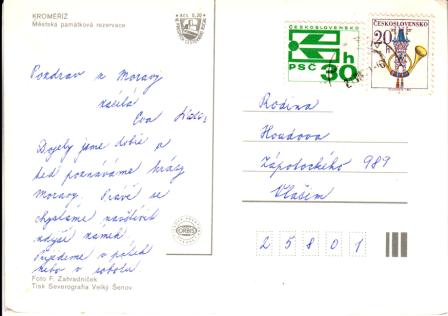 KROMĚŘÍŽ
Městská památková rezervace
Kčs 0,30
ČESKOSLOVENSKO
PSČ 30h
ČESKOSLOVENSKO
20 h
Pozdrav z Moravy
zasílá
Eva
Dojely jsme dobře a
teď poznáváme krásy
Moravy. Právě se
chystáme navštívit
zdejší zámek
Přijedeme v pátek
nebo v sobotu
Rodina
Houdova
Zápotockého 989
Vlašim
25801
ORBIS
Foto F. Zahradníček
Tisk Severografia Velký Šenov